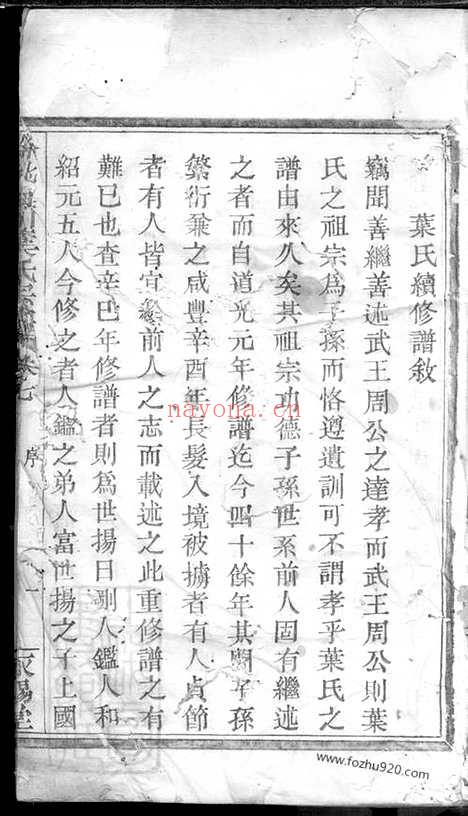 葉氏續修譜敘
竊聞善繼善述武王周公之達孝而武王周公則葉
氏之祖宗為子孫而恪遵遺訓可不謂孝乎葉氏之
譜由來久矣其祖宗功德子孫世系前人固有繼述
之者而自道光元年修譜迄今四十餘年其間子孫
蕃衍兼之咸豐辛酉年長髮入境被擄者有人貞節
者有人皆宜繼前人之志而載述之此重修譜之有
難已也查辛巳年修譜者則為世揚日剛人鑑人和
紹元五人今修之者人鑑之弟人富世揚之子上國
氏宗譜 卷七
序
一
nayona.cn
www.fozhu920.com